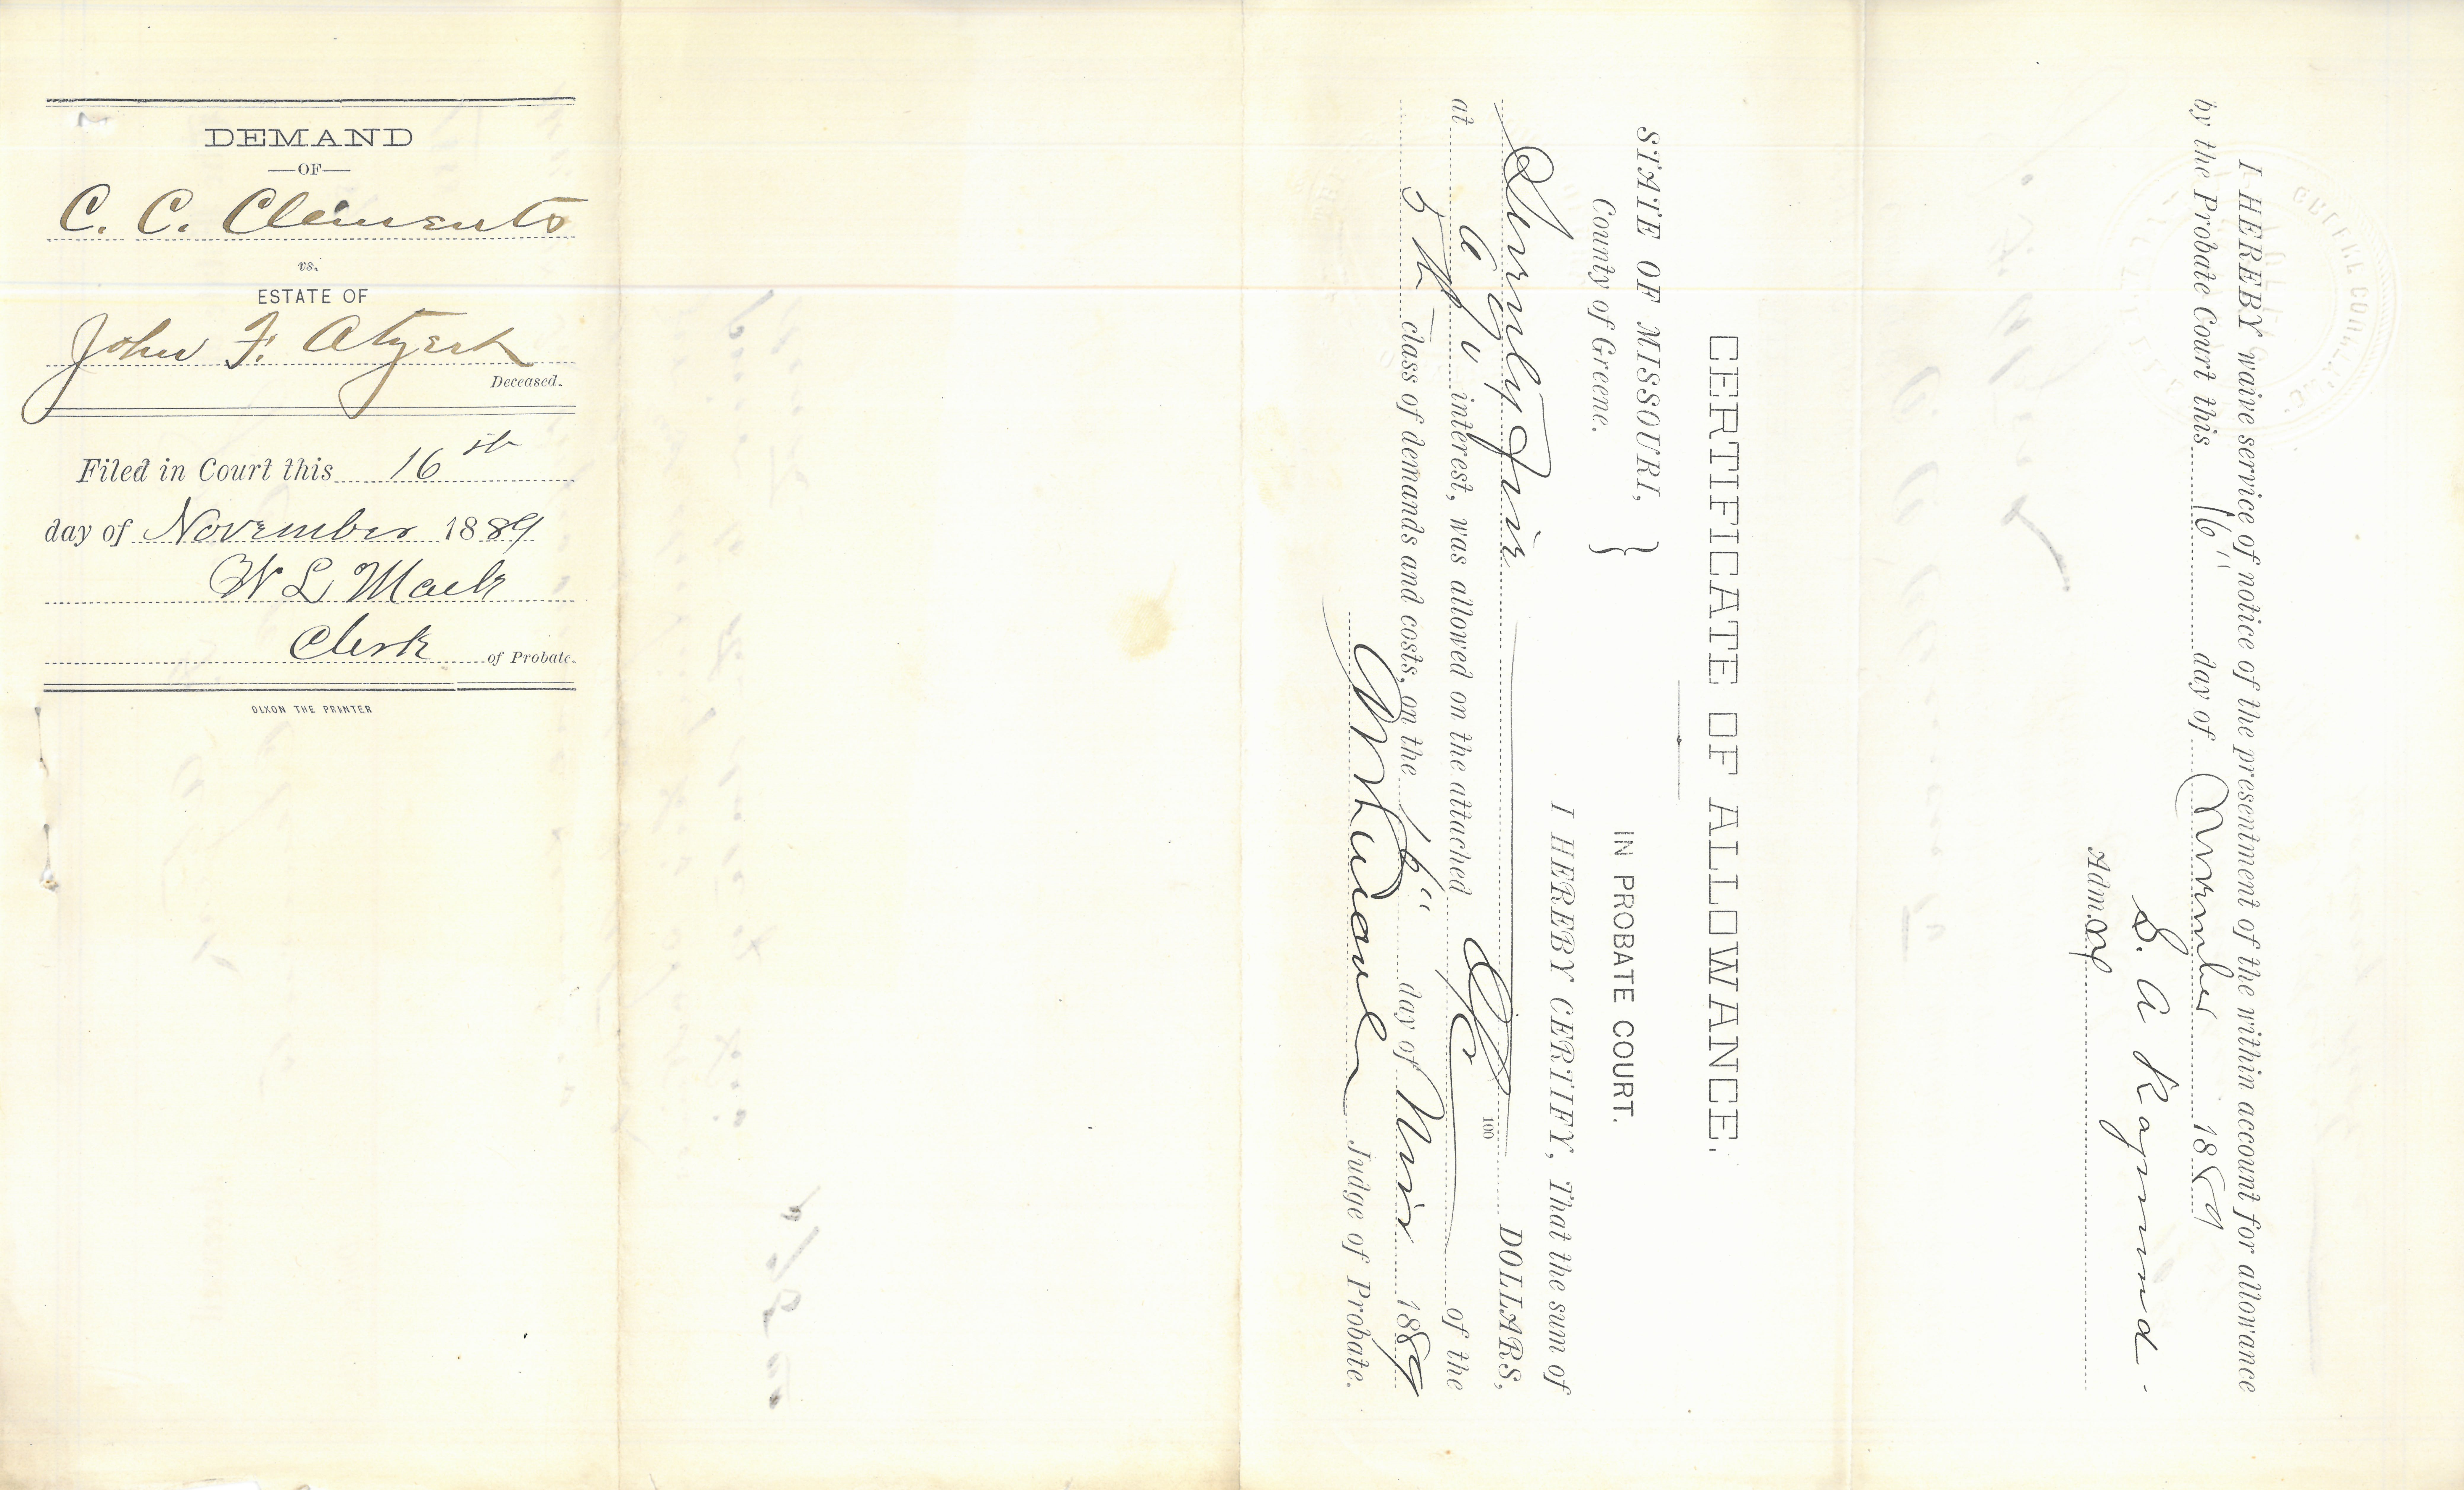 DEMAND
—OF—
C. C. Clements
vs.
ESTATE OF
John F. Atzert
Deceased.
Filed in Court this 16th
day of November 1889
W L Mack
Clerk of Probate.
DIXON THE PRINTER
CERTIFICATE OF ALLOWANCE.
STATE OF MISSOURI, }
County of Greene. IN PROBATE COURT.
I HEREBY CERTIFY, That the sum of
Seventy five 100 DOLLARS,
at interest, was allowed on the attached of the
5th class of demands and costs, on the 16" day of Nov 1889
Judge of Probate.
I HEREBY waive service of notice of the presentment of the within account for allowance
by the Probate Court this 16" day of November 1889
S. A. Ragsund
Admox